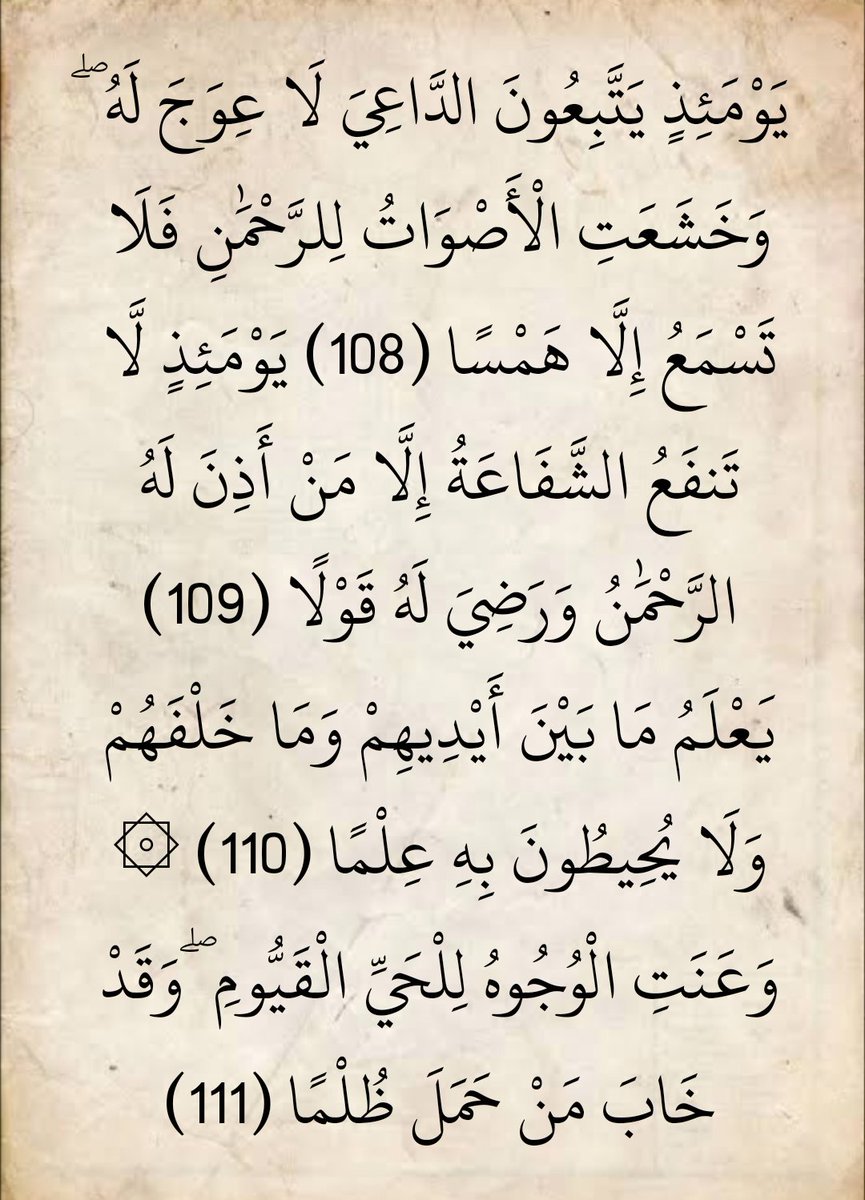 يَوْمَئِذٍ يَتَّبِعُونَ الدَّاعِيَ لَا عِوَجَ لَهُ ۖ
وَخَشَعَتِ الْأَصْوَاتُ لِلرَّحْمَٰنِ فَلَا
تَسْمَعُ إِلَّا هَمْسًا (108) يَوْمَئِذٍ لَّا
تَنفَعُ الشَّفَاعَةُ إِلَّا مَنْ أَذِنَ لَهُ
الرَّحْمَٰنُ وَرَضِيَ لَهُ قَوْلًا (109)
يَعْلَمُ مَا بَيْنَ أَيْدِيهِمْ وَمَا خَلْفَهُمْ
وَلَا يُحِيطُونَ بِهِ عِلْمًا (110) ۞
وَعَنَتِ الْوُجُوهُ لِلْحَيِّ الْقَيُّومِ ۖ وَقَدْ
خَابَ مَنْ حَمَلَ ظُلْمًا (111)